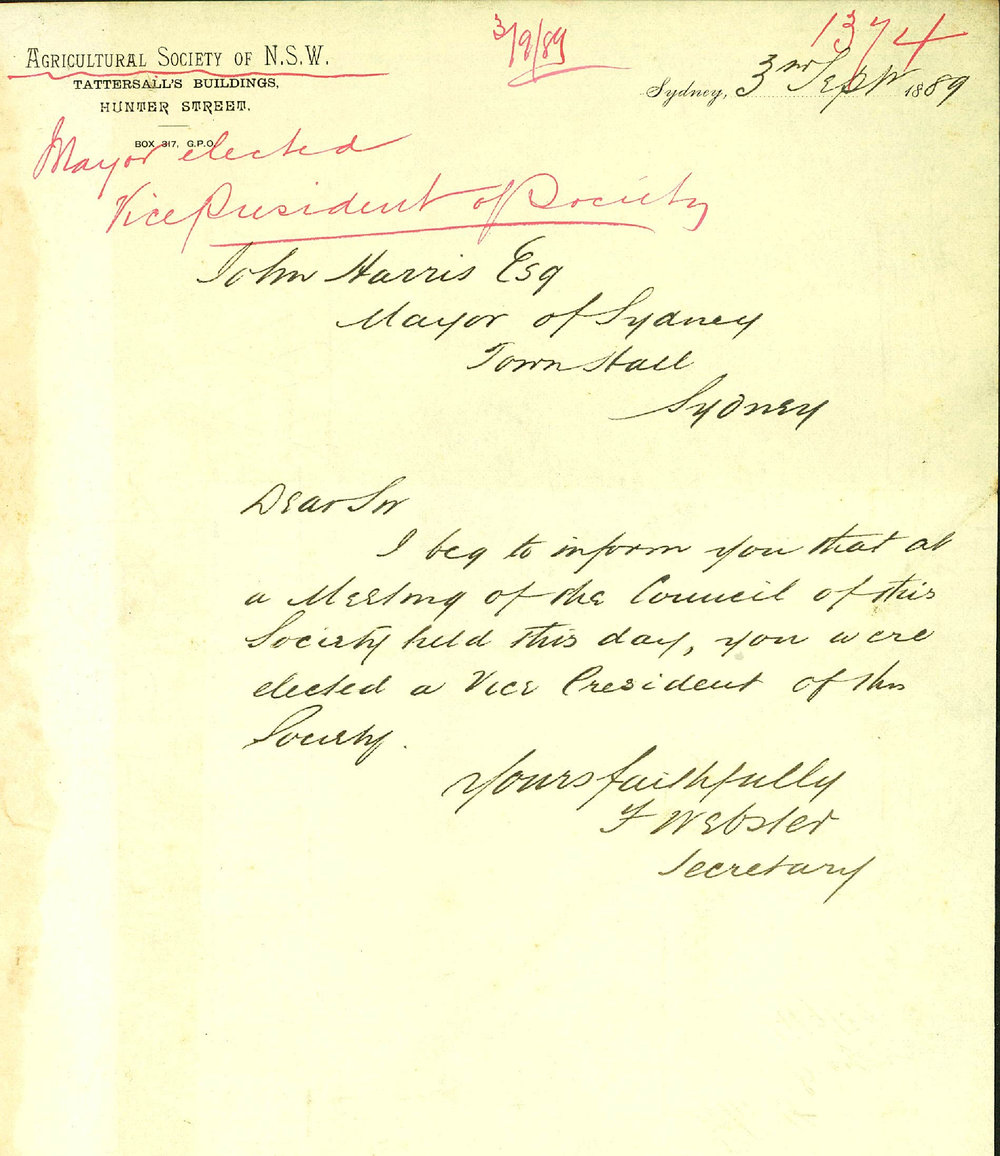 3/9/89
1374
AGRICULTURAL SOCIETY OF N.S.W.
TATTERSALL'S BUILDINGS,
HUNTER STREET.
BOX 317, G.P.O.
Sydney, 3rd Septr 1889
Mayor elected
Vice President of Society
John Harris Esq
Mayor of Sydney
Town Hall
Sydney
Dear Sir
I beg to inform you that at
a Meeting of the Council of this
Society held this day, you were
elected a Vice President of this
Society.
Yours faithfully
F Webster
Secretary